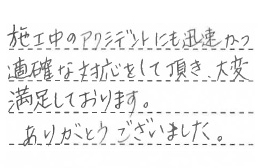 施工中のアクシデントにも迅速かつ
適確な対応をして頂き、大変
満足しております。
ありがとうございました。